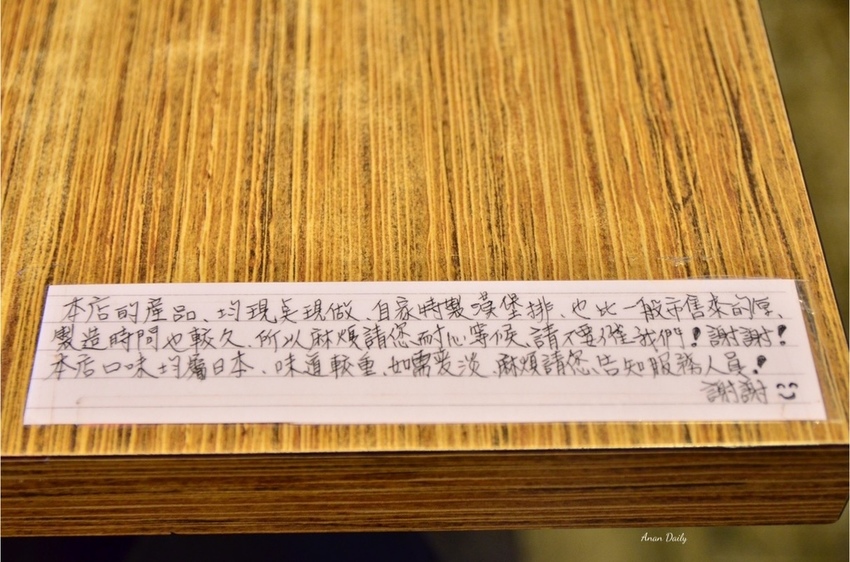 本店的產品、均現桌現做、自家特製漢堡排、也比一般市售來的厚、
製造時間也較久、所以麻煩請您耐心等候、請不要催我們！謝謝！
本店口味均屬日本、味道較重、如需要淡、麻煩請您告知服務人員！
謝謝
Anan Daily